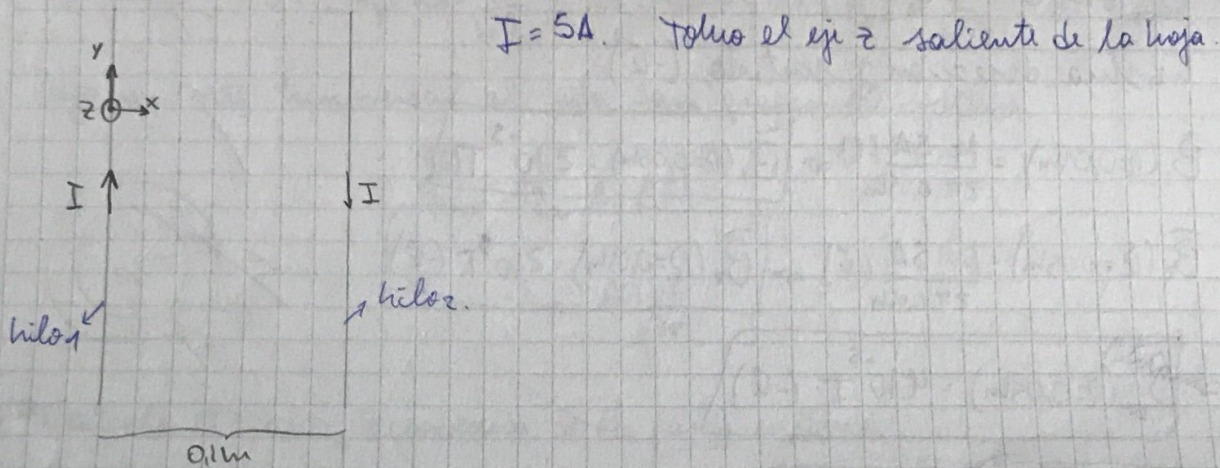 I = 5A. Tomo el eje z saliente de la hoja.
y
z x
I I
hilo 2.
hilo 1
0,1m